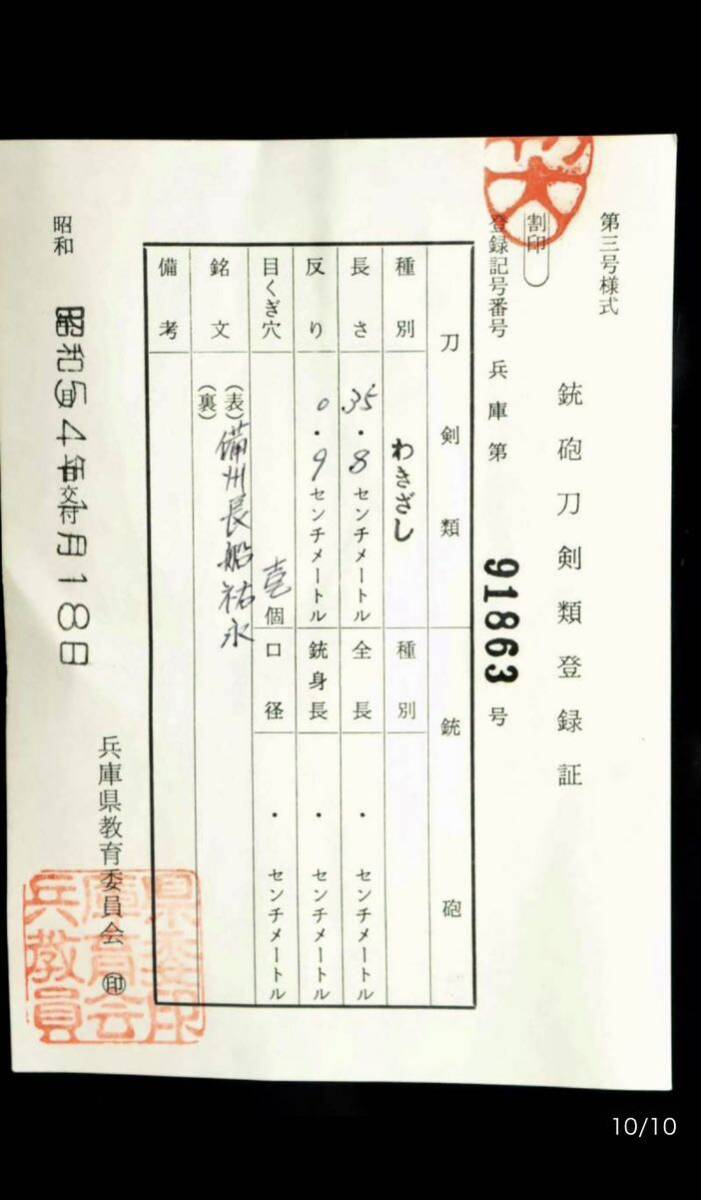 第三号様式
銃砲刀剣類登録証
割印
登録記号番号 兵庫第 91863 号
刀剣類 銃砲
種別 わきざし 種別
長さ 35.8センチメートル 全長 ・ センチメートル
反り 0.9センチメートル 銃身長 ・ センチメートル
目くぎ穴 壱個 口径 ・ センチメートル
銘文 (表)備州長船祐永
(裏)
備考
昭和 昭和54年1月18日
交付
兵庫県教育委員会 印
兵庫県教育委員会印
10/10